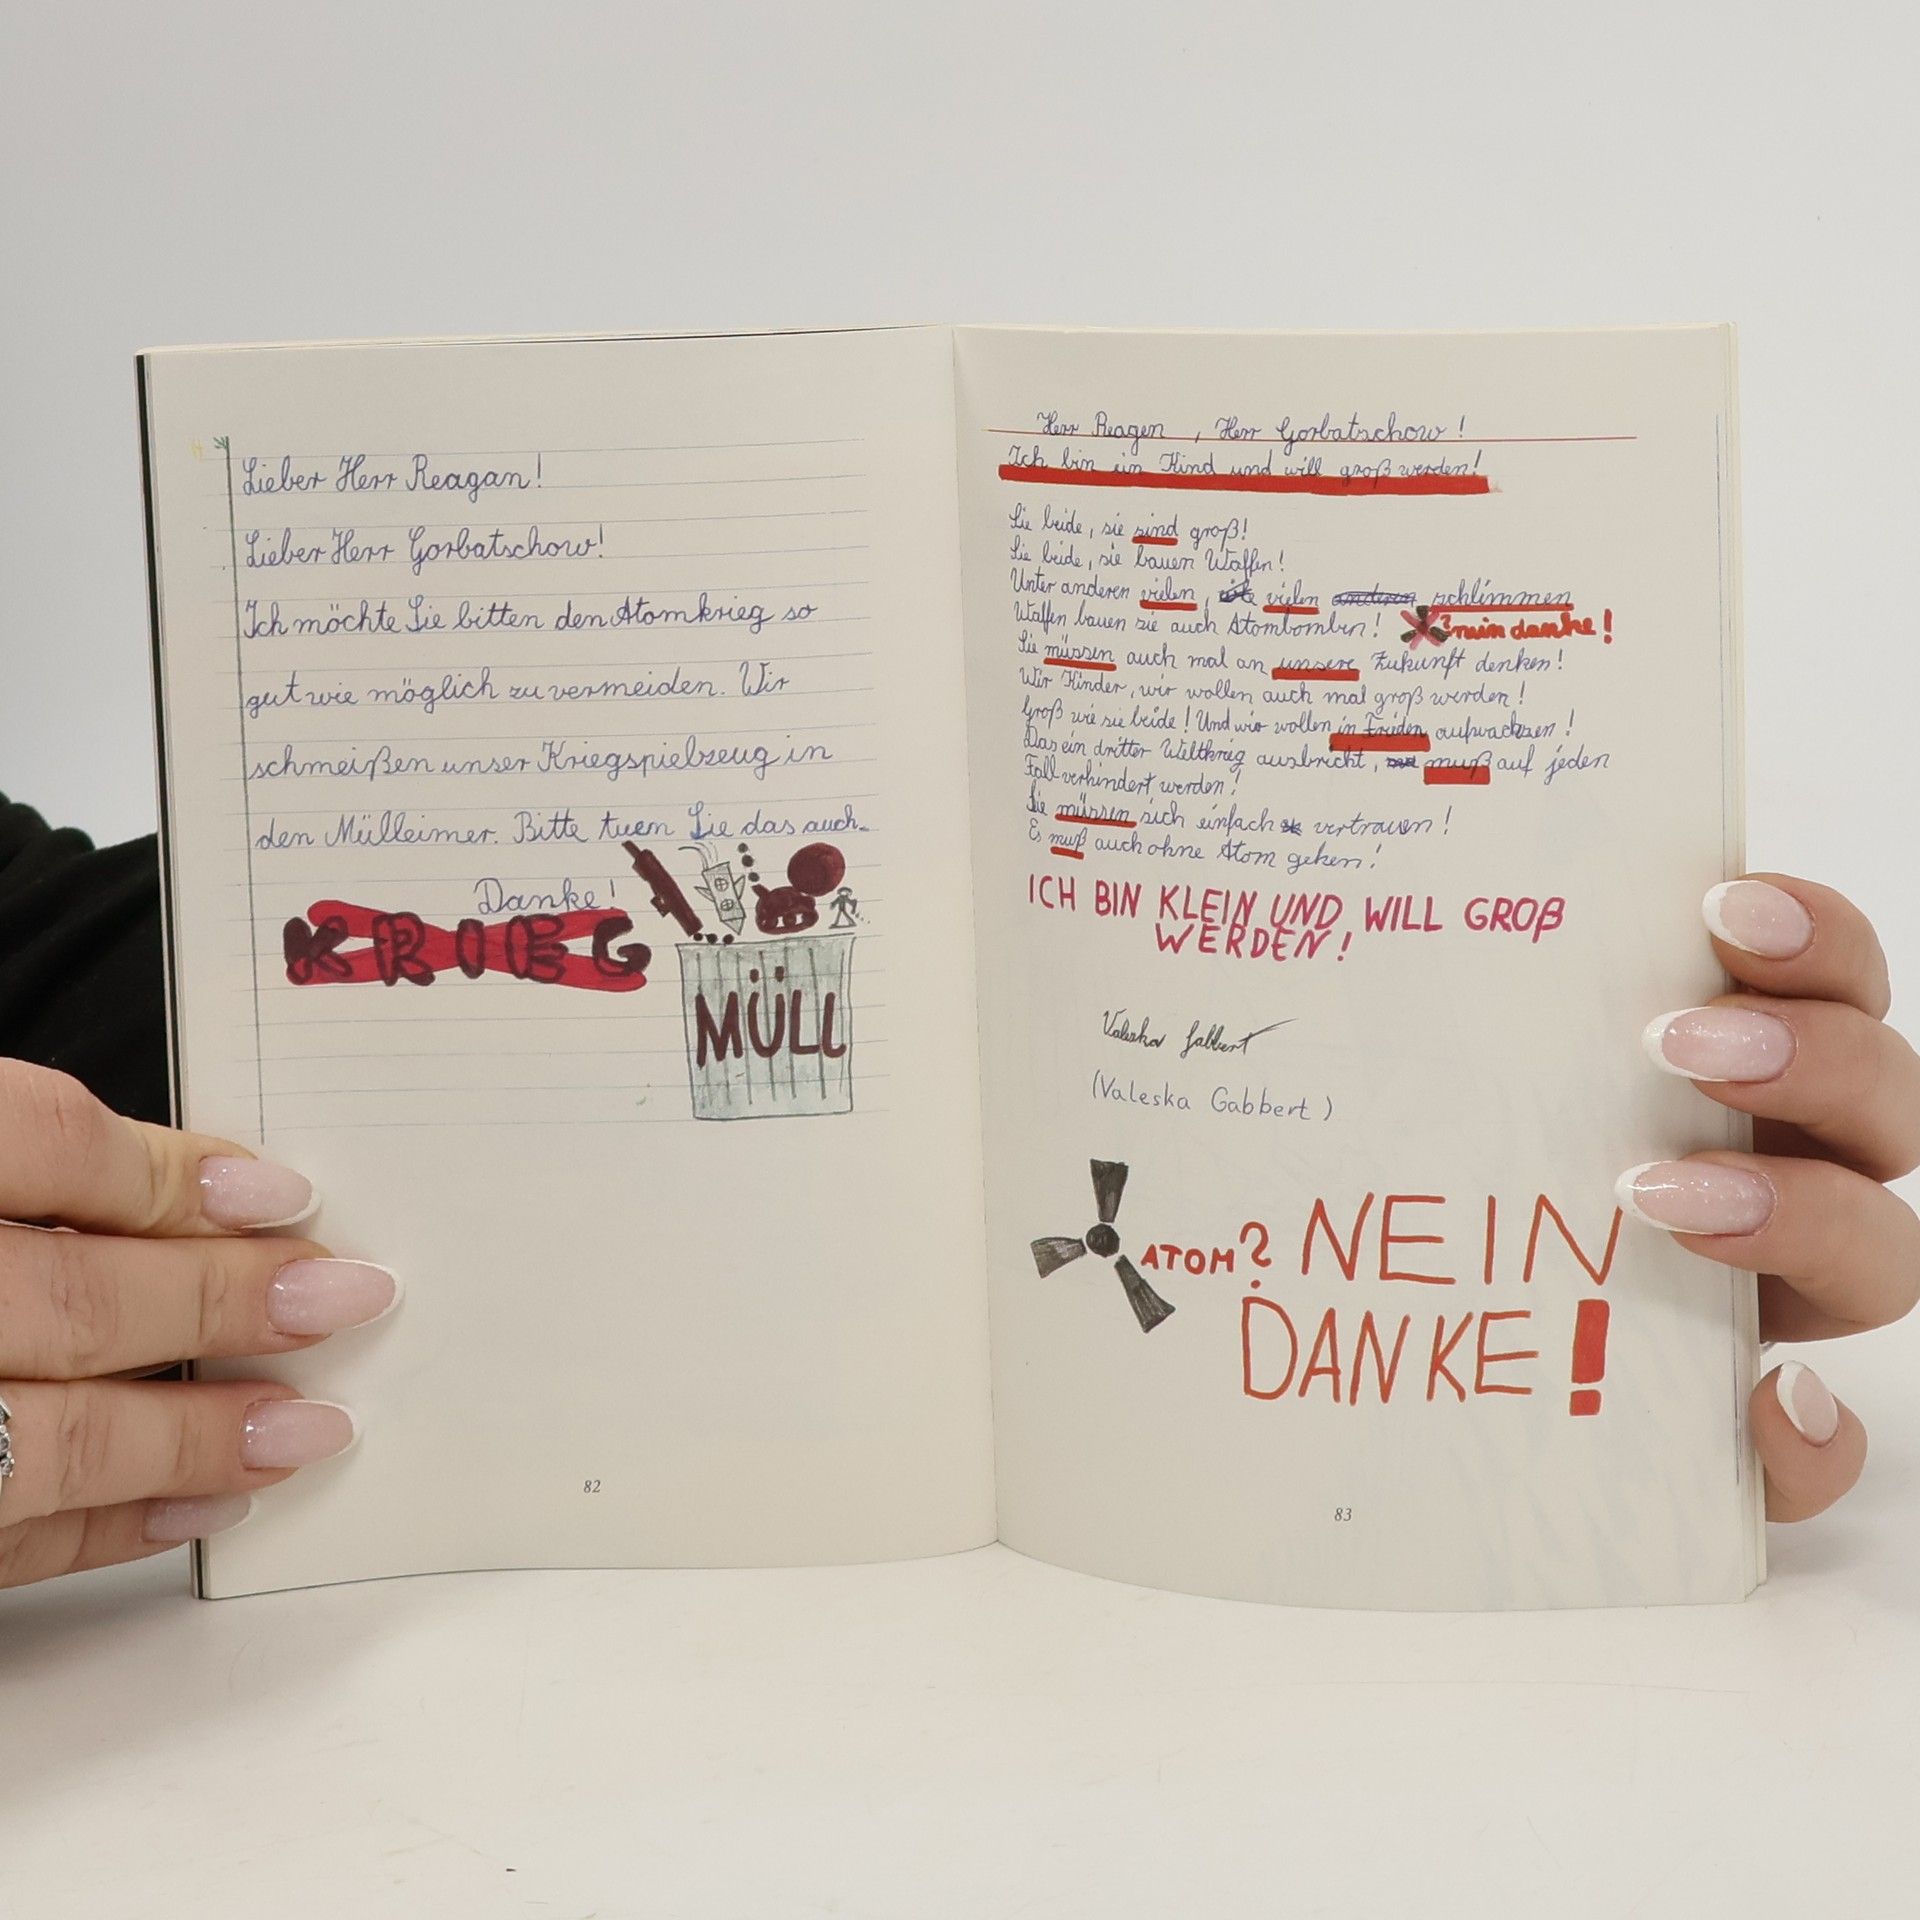 Lieber Herr Reagan!
Lieber Herr Gorbatschow!
Ich möchte Sie bitten den Atomkrieg so
gut wie möglich zu vermeiden. Wir
schmeißen unser Kriegspielzeug in
den Mülleimer. Bitte tuen Sie das auch.
Danke!
KRIEG
MÜLL
82
Herr Reagen, Herr Gorbatschow!
Ich bin ein Kind und will groß werden!
Sie beide, sie sind groß!
Sie beide, sie bauen Waffen!
Unter anderen vielen, vielen anderen schlimmen
Waffen bauen sie auch Atombomben! ? nein danke!
Sie müssen auch mal an unsere Zukunft denken!
Wir Kinder, wir wollen auch mal groß werden!
Groß wie sie beide! Und wir wollen in Frieden aufwachsen!
Das ein dritter Weltkrieg ausbricht, muß auf jeden
Fall verhindert werden!
Sie müssen sich einfach vertrauen!
Es muß auch ohne Atom gehen!
ICH BIN KLEIN UND WILL GROß
WERDEN!
Valeska Gabbert
(Valeska Gabbert)
ATOM? NEIN
DANKE!
83